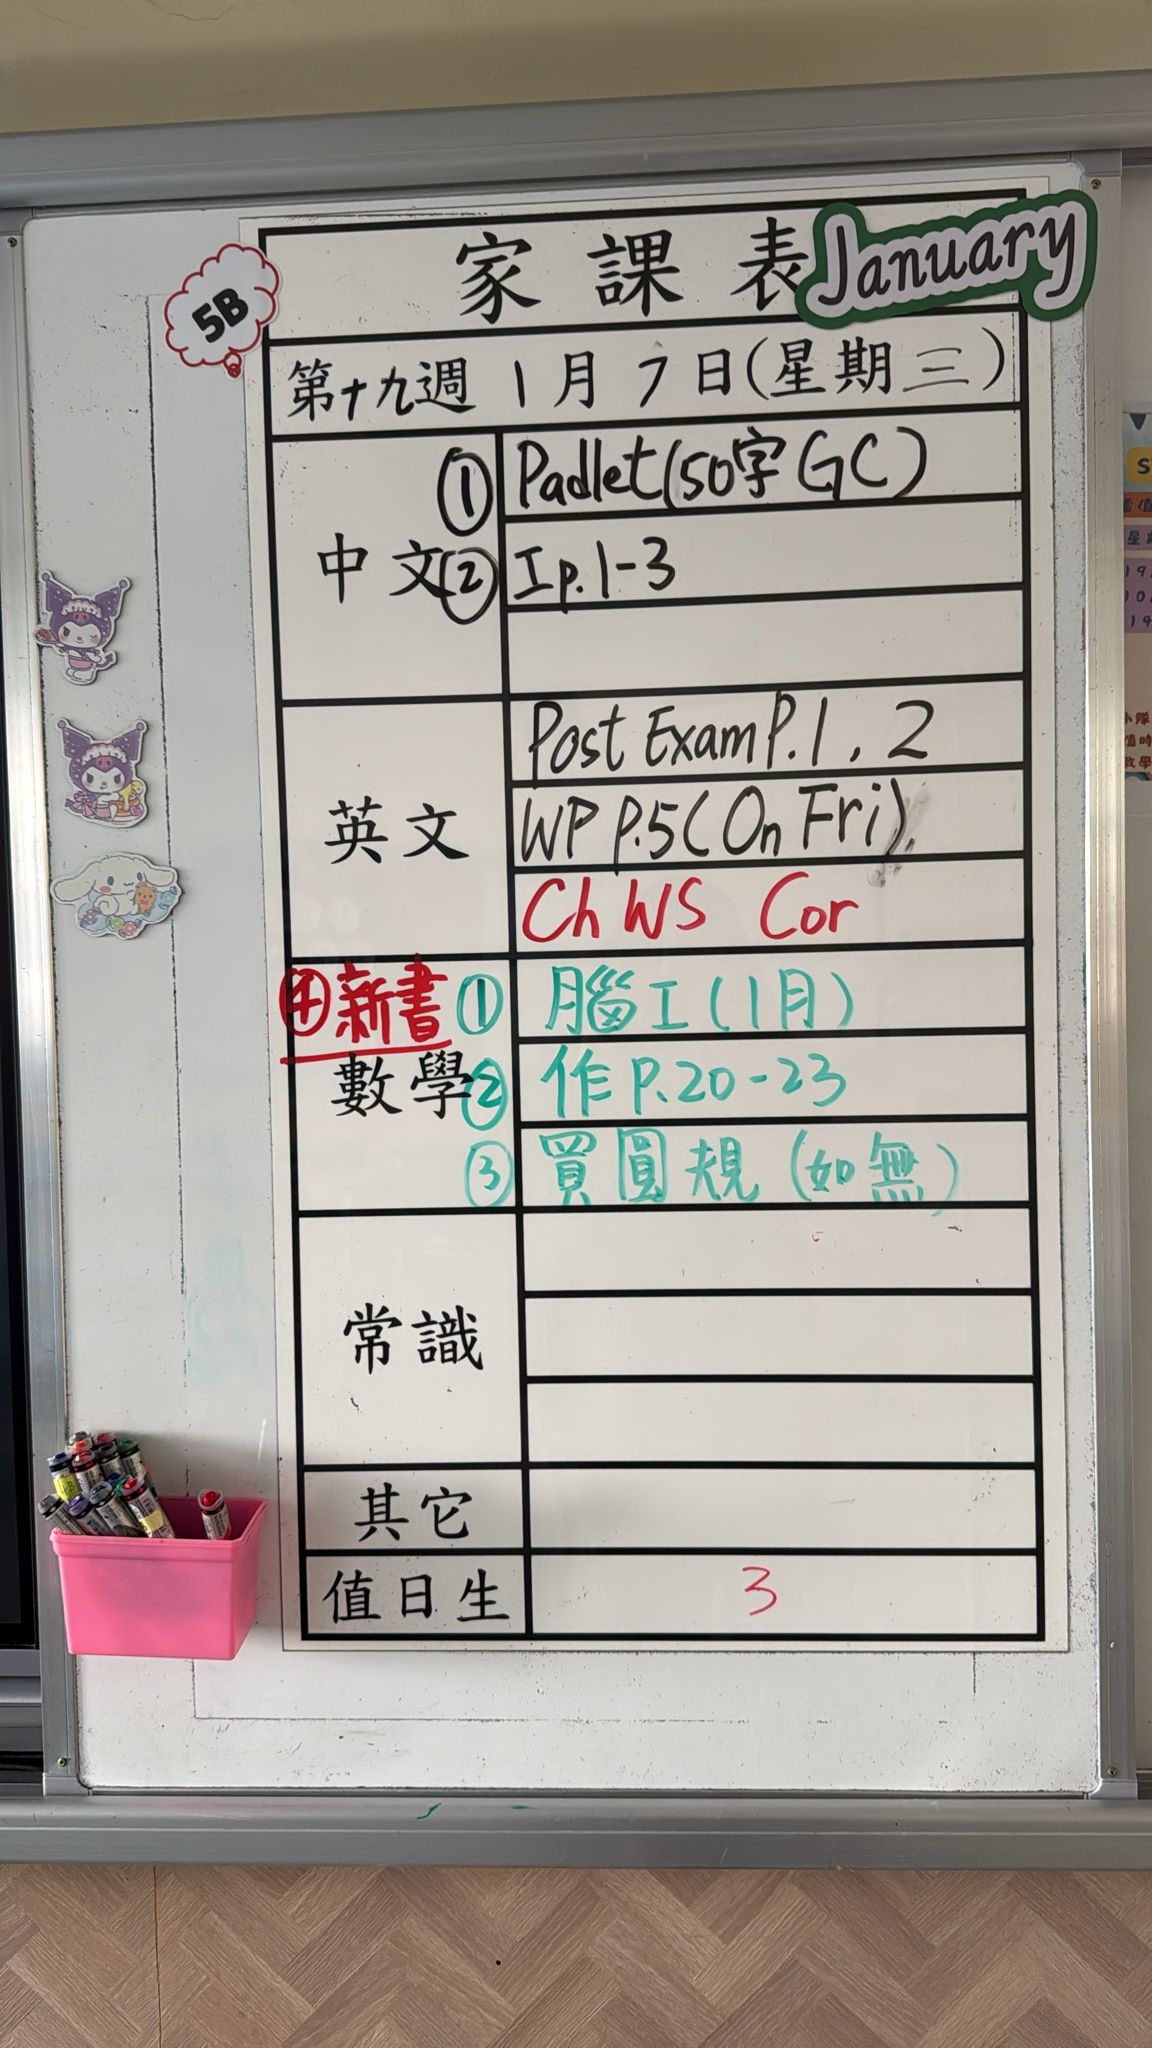 家課表
January
5B
第十九週 1月7日(星期三)
中文
① Padlet(50字 GC)
② I p.1-3
英文
Post Exam P.1, 2
WP P.5 (On Fri).
Ch WS Cor
數學
④新書
① 腦工(1月)
② 作 P.20-23
③ 買圓規(如無)
常識
其它
值日生
3